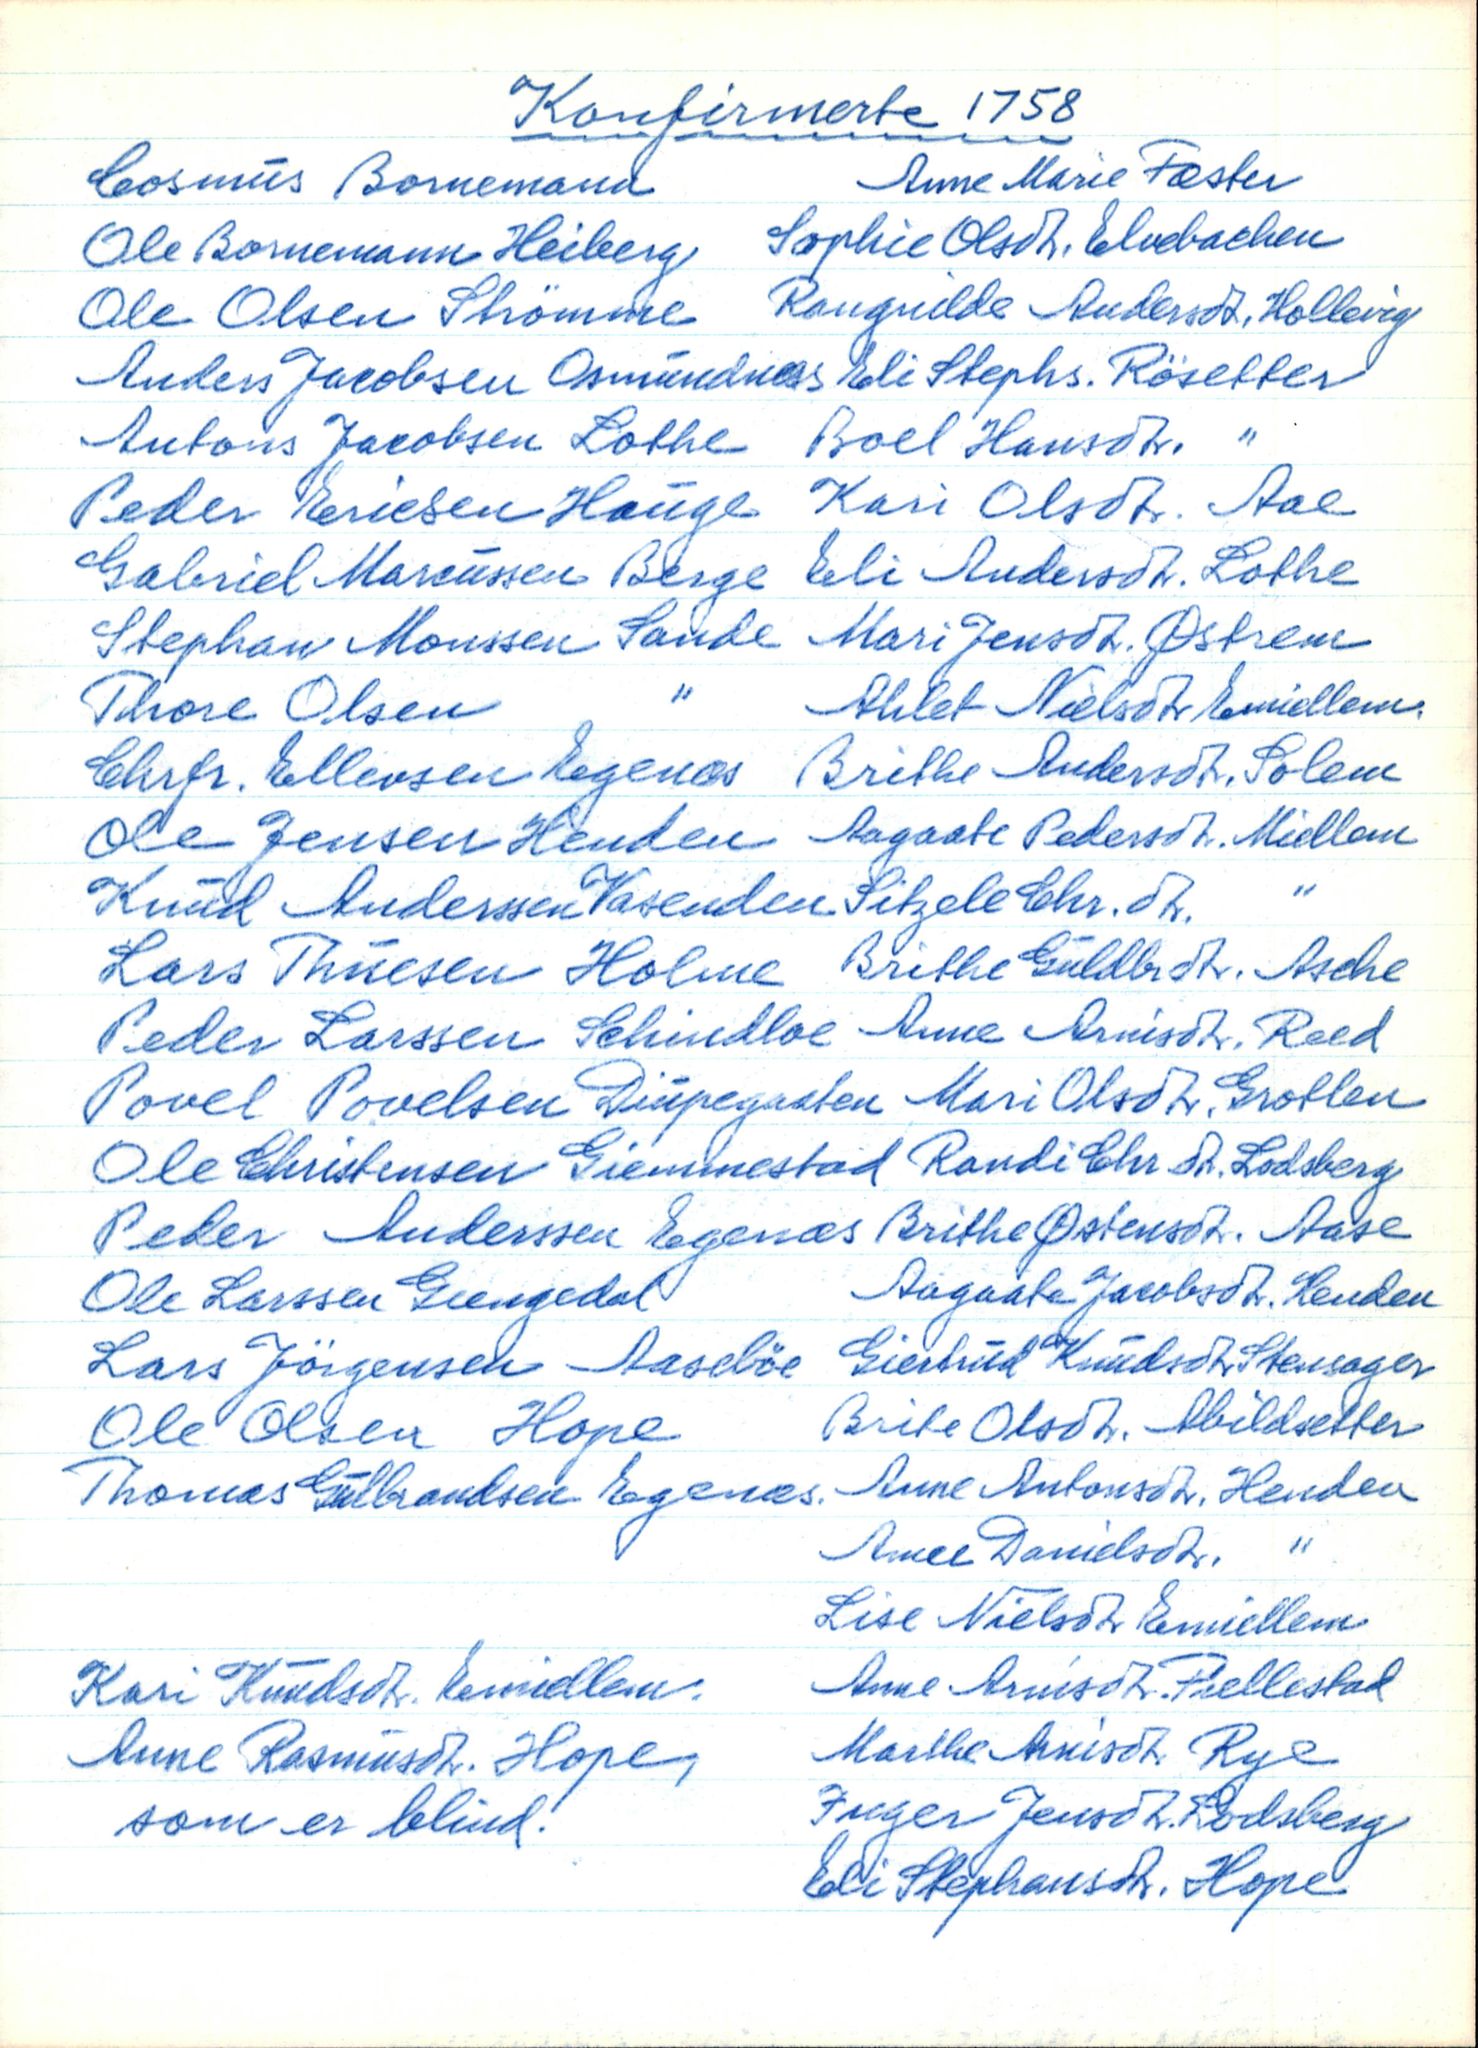 Konfirmerte 1758
Cosmus Bornemann
Ole Bornemann Heiberg
Ole Olsen Strömme
Anders Jacobsen Osmundnæs
Antons Jacobsen Lothe
Peder Ericsen Hauge
Gabriel Marcussen Berge
Stephan Monssen Sande
Thore Olsen "
Chrfr. Ellevsen Egenæs
Ole Jensen Henden
Knud Anderssen Vasenden
Lars Thuesen Holme
Peder Larssen Schindloe
Povel Povelsen Diupegaaten
Ole Christensen Giemmestad
Peder Anderssen Egenæs
Ole Larssen Giengedal
Lars Jörgensen Aaseböe
Ole Olsen Hope
Thomas Gulbrandsen Egenæs.
Kari Knudsdtr. Emiellem.
Anne Rasmusdtr. Hope,
som er blind.
Anne Marie Fæster
Sophie Olsdtr. Elvebachen
Rangnilde Andersdtr. Hollevig
Eli Stephs. Rösetter
Boel Hansdtr. "
Kari Olsdtr. Aae
Eli Andersdtr. Lothe
Mari Jensdtr. Østrem
Ahlet Nielsdtr Emiellem.
Brithe Andersdtr. Solem
Aagaate Pedersdtr. Miellem
Sitzele Chr. dtr. "
Brithe Guldbrdtr. Asche
Anne Arnisdtr. Reed
Mari Olsdtr. Grotlen
Randi Chr dtr. Lodsberg
Brithe Østensdtr. Aase
Aagaata Jacobsdtr. Henden
Giertrud Knudsdtr Stensager
Brite Olsdtr. Abildsetter
Anne Antonsdtr. Henden
Anne Danielsdtr. "
Lise Nielsdtr Emiellem
Anne Arnisdtr. Fiellestad
Marthe Arnisdtr. Rye
Inger Jensdtr. Lodsberg
Eli Stephansdtr. Hope